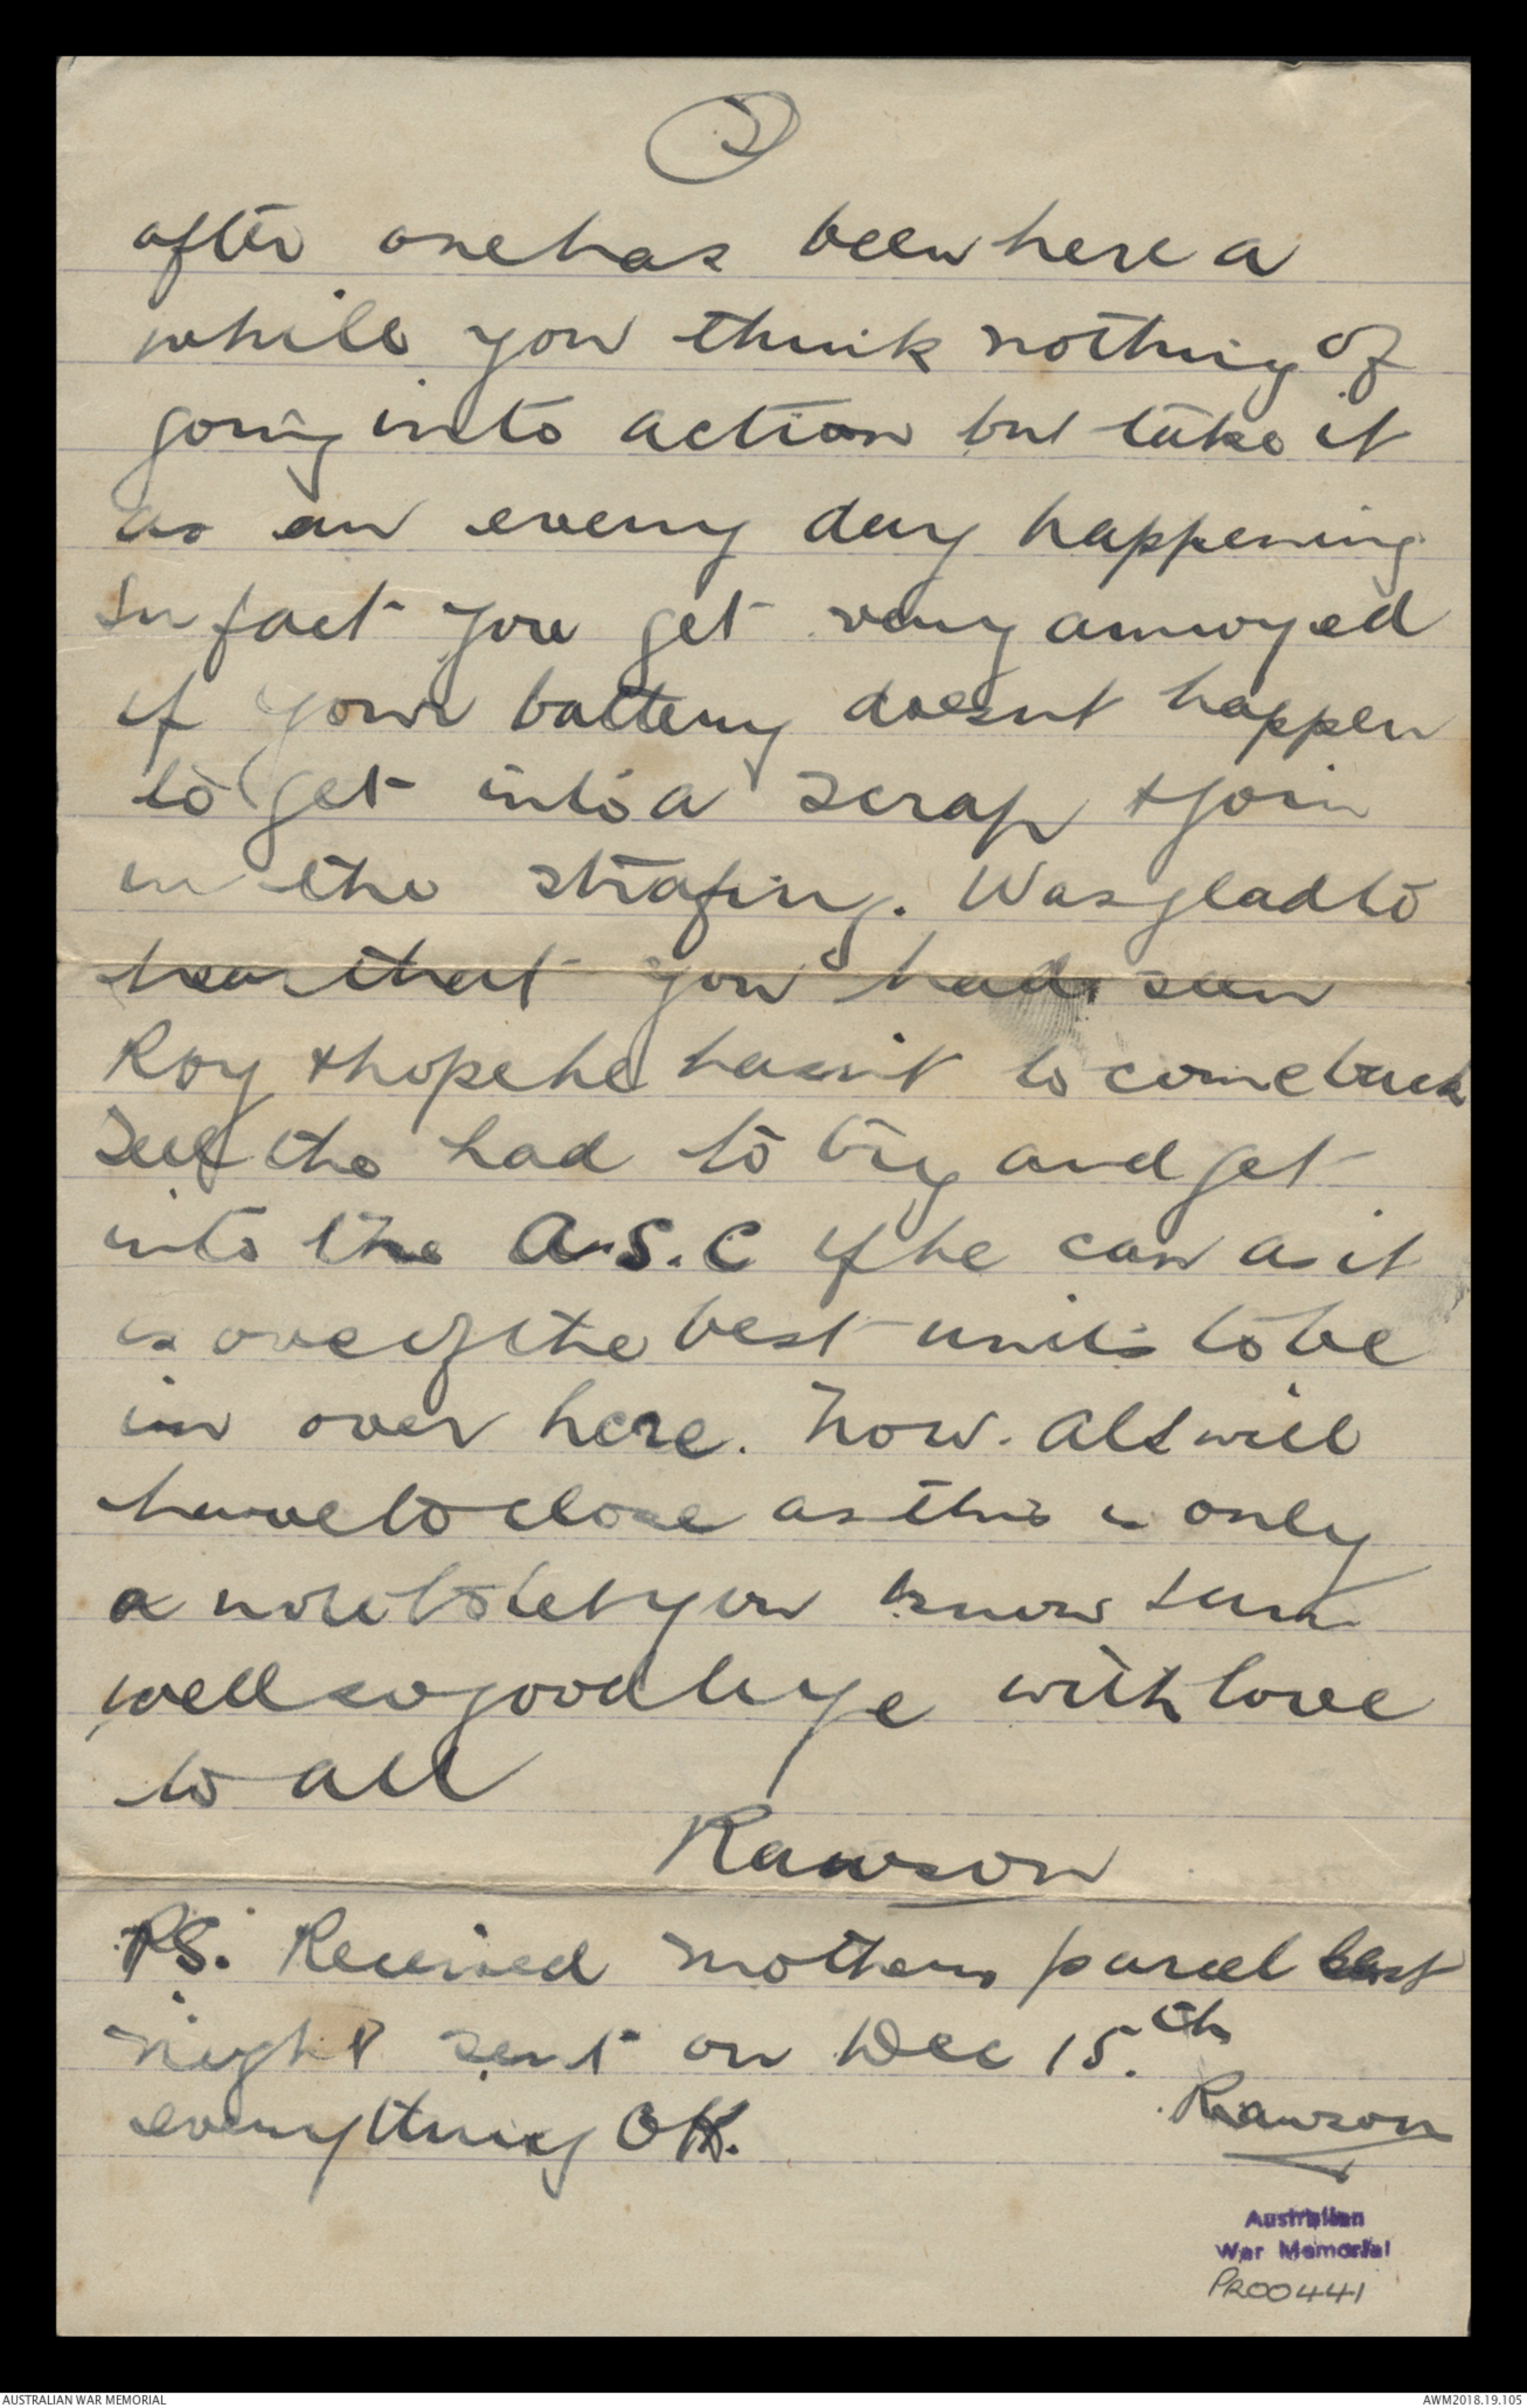 2
after one has been here a
while you think nothing of
going into action but take it
as an every day happening
In fact you get very annoyed
if your battery doesnt happen
to get into a scrap & join
in the strafing. Was glad to
hear that you had seen
Roy & hope he hasnt to come back
Tell the lad to try and get
into the A.S.C if he can as it
is one of the best units to be
in over here. Now. Alf will
have to close as this is only
a note to let you know I am
well so goodbye with love
to all
Rawson
P.S. Received mothers parcel last
night sent on Dec 15.th
everything OK.
Rawson
Australian
War Memorial
PR00441
AUSTRALIAN WAR MEMORIAL
AWM2018.19.105